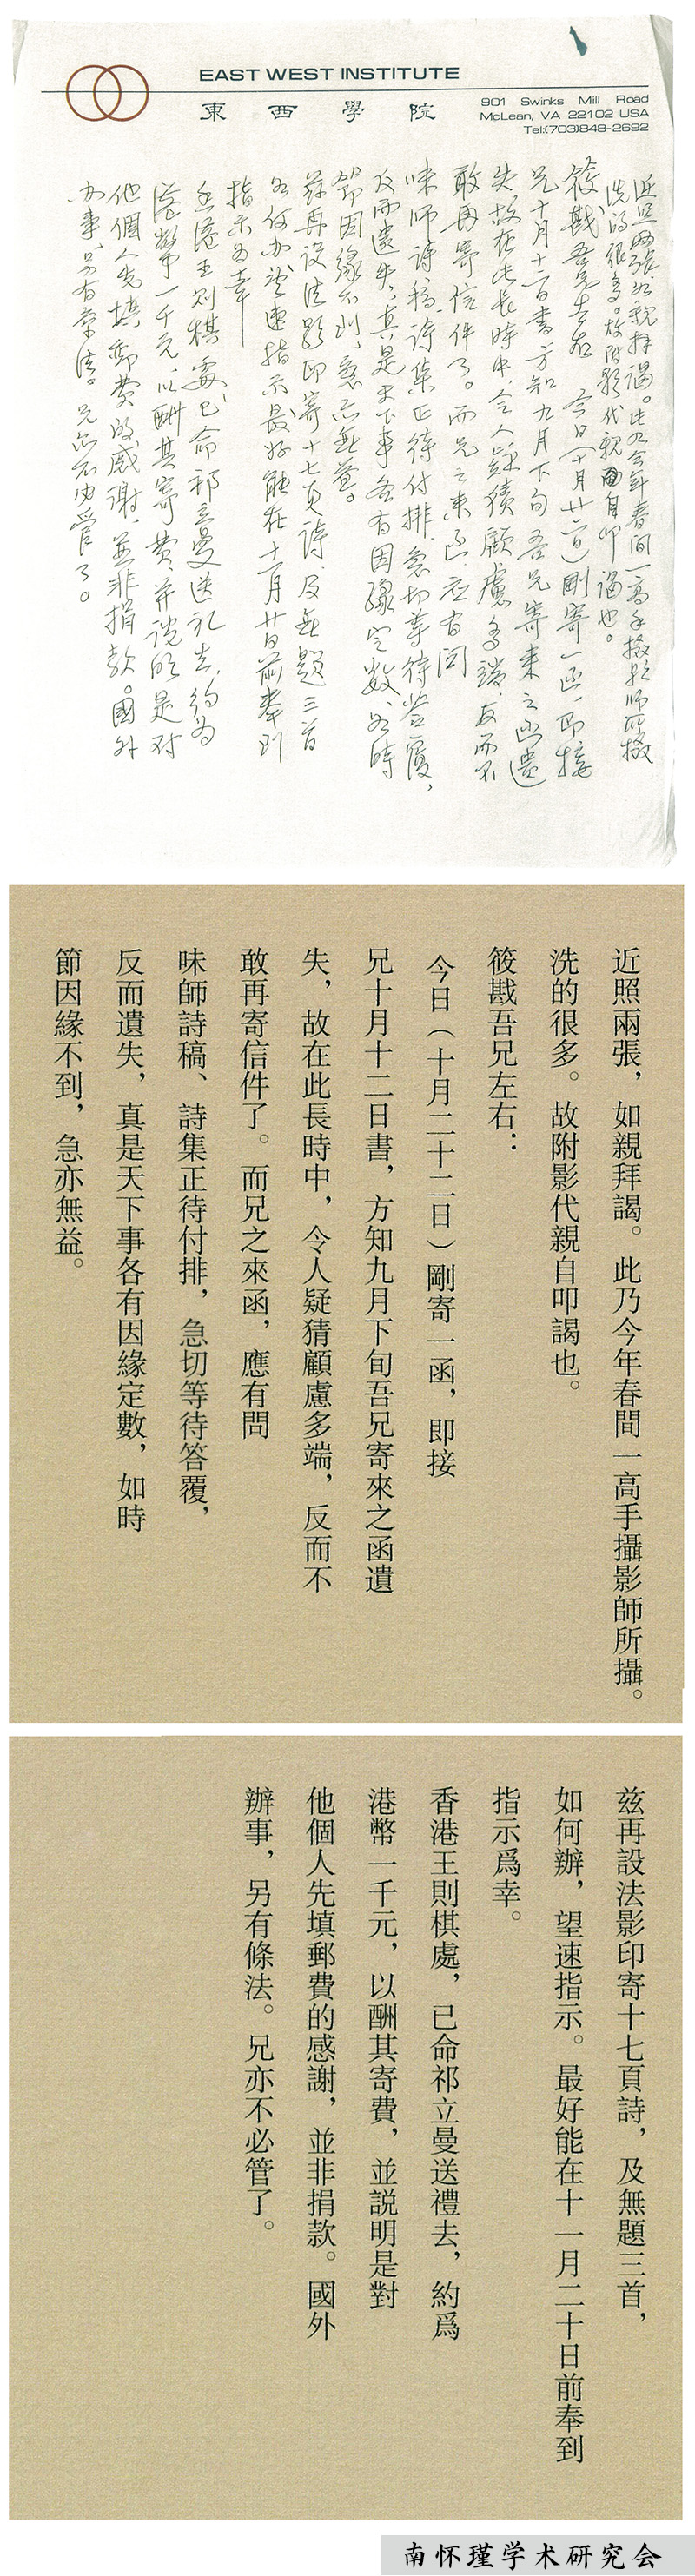 EAST WEST INSTITUTE
東西學院
901 Swinks Mill Road
McLean, VA 22102 USA
Tel:(703)848-2692
近照兩張如親拜謁。此乃今年春間一高手攝影師所攝
洗的很多。故附影代親自叩謁也。
筱戡吾兄左右 今日(十月廿二日)剛寄一函,即接
兄十月十二日書,方知九月下旬吾兄寄來之函遺
失,故在此長時中,令人疑猜顧慮多端,反而不
敢再寄信件了。而兄之來函,應有問
味師詩稿、詩集正待付排,急切等待答覆,
反而遺失,真是天下事各有因緣定數,如時
節因緣不到,急亦無益。
茲再設法影印寄十七頁詩,及無題三首
如何办,望速指示最好能在十一月廿日前奉到
指示为幸
香港王则棋處,已命祁立曼送礼去,约为
港幣一千元,以酬其寄費,并说明是对
他個人先填郵费的感謝,並非捐款。國外
办事,另有条法。兄亦不必管了。
近照兩張,如親拜謁。此乃今年春間一高手攝影師所攝。
洗的很多。故附影代親自叩謁也。
筱戡吾兄左右:
今日(十月二十二日)剛寄一函,即接
兄十月十二日書,方知九月下旬吾兄寄來之函遺
失,故在此長時中,令人疑猜顧慮多端,反而不
敢再寄信件了。而兄之來函,應有問
味師詩稿、詩集正待付排,急切等待答覆,
反而遺失,真是天下事各有因緣定數,如時
節因緣不到,急亦無益。
兹再設法影印寄十七頁詩,及無題三首,
如何辦,望速指示。最好能在十一月二十日前奉到
指示爲幸。
香港王則棋處,已命祁立曼送禮去,約爲
港幣一千元,以酬其寄費,並説明是對
他個人先填郵費的感謝,並非捐款。國外
辦事,另有條法。兄亦不必管了。
南怀瑾学术研究会